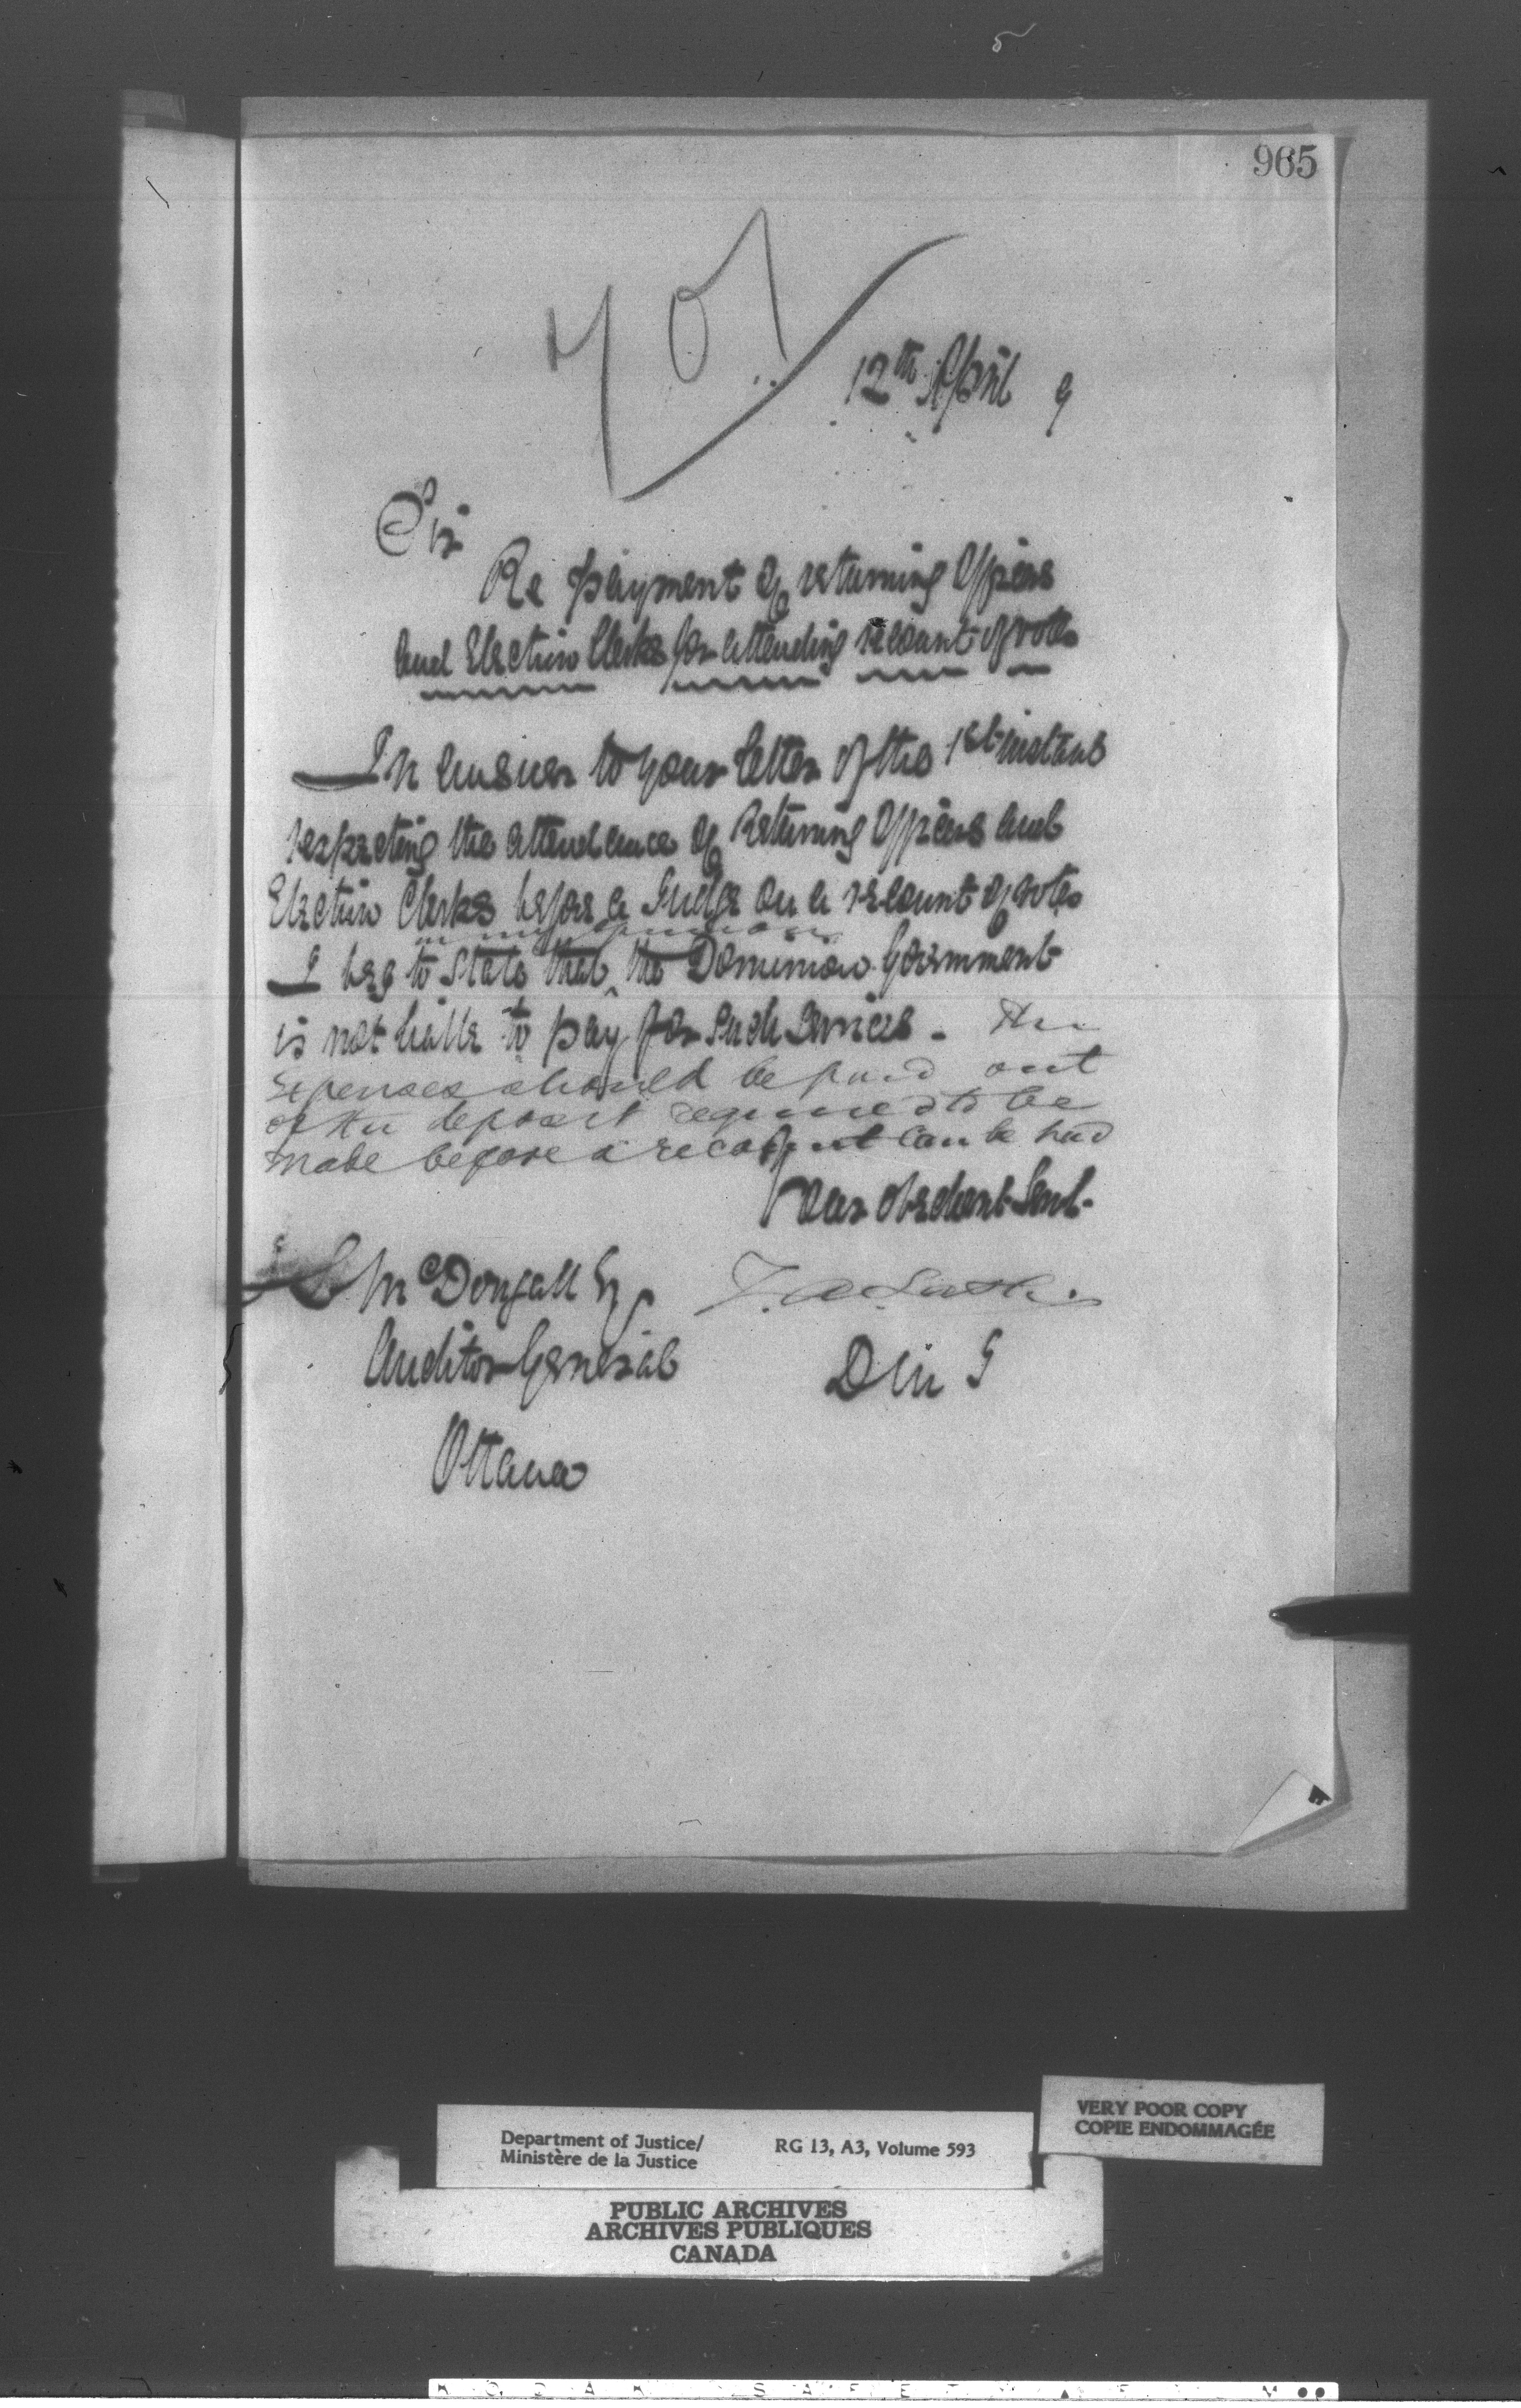 965
701
12th April 9
Sir
Re payment of returning Officers
and Election Clerks for attending recount of votes
In answer to your letter of the 1st instant
respecting the attendance of Returning Officers and
Election Clerks before a Judge on a recount of votes
in my opinion
I beg to state that ‸ the Dominion Government
is not liable to pay for such services - The
expenses should be paid out
of the deposit required to be
made before a recount can be had
Your obedient Servt.
McDougall Esq
Z. A. Lash.
Auditor General
D M J
Ottawa
VERY POOR COPY
COPIE ENDOMMAGÉE
Department of Justice/
Ministère de la Justice
RG 13, A3, Volume 593
PUBLIC ARCHIVES
ARCHIVES PUBLIQUES
CANADA